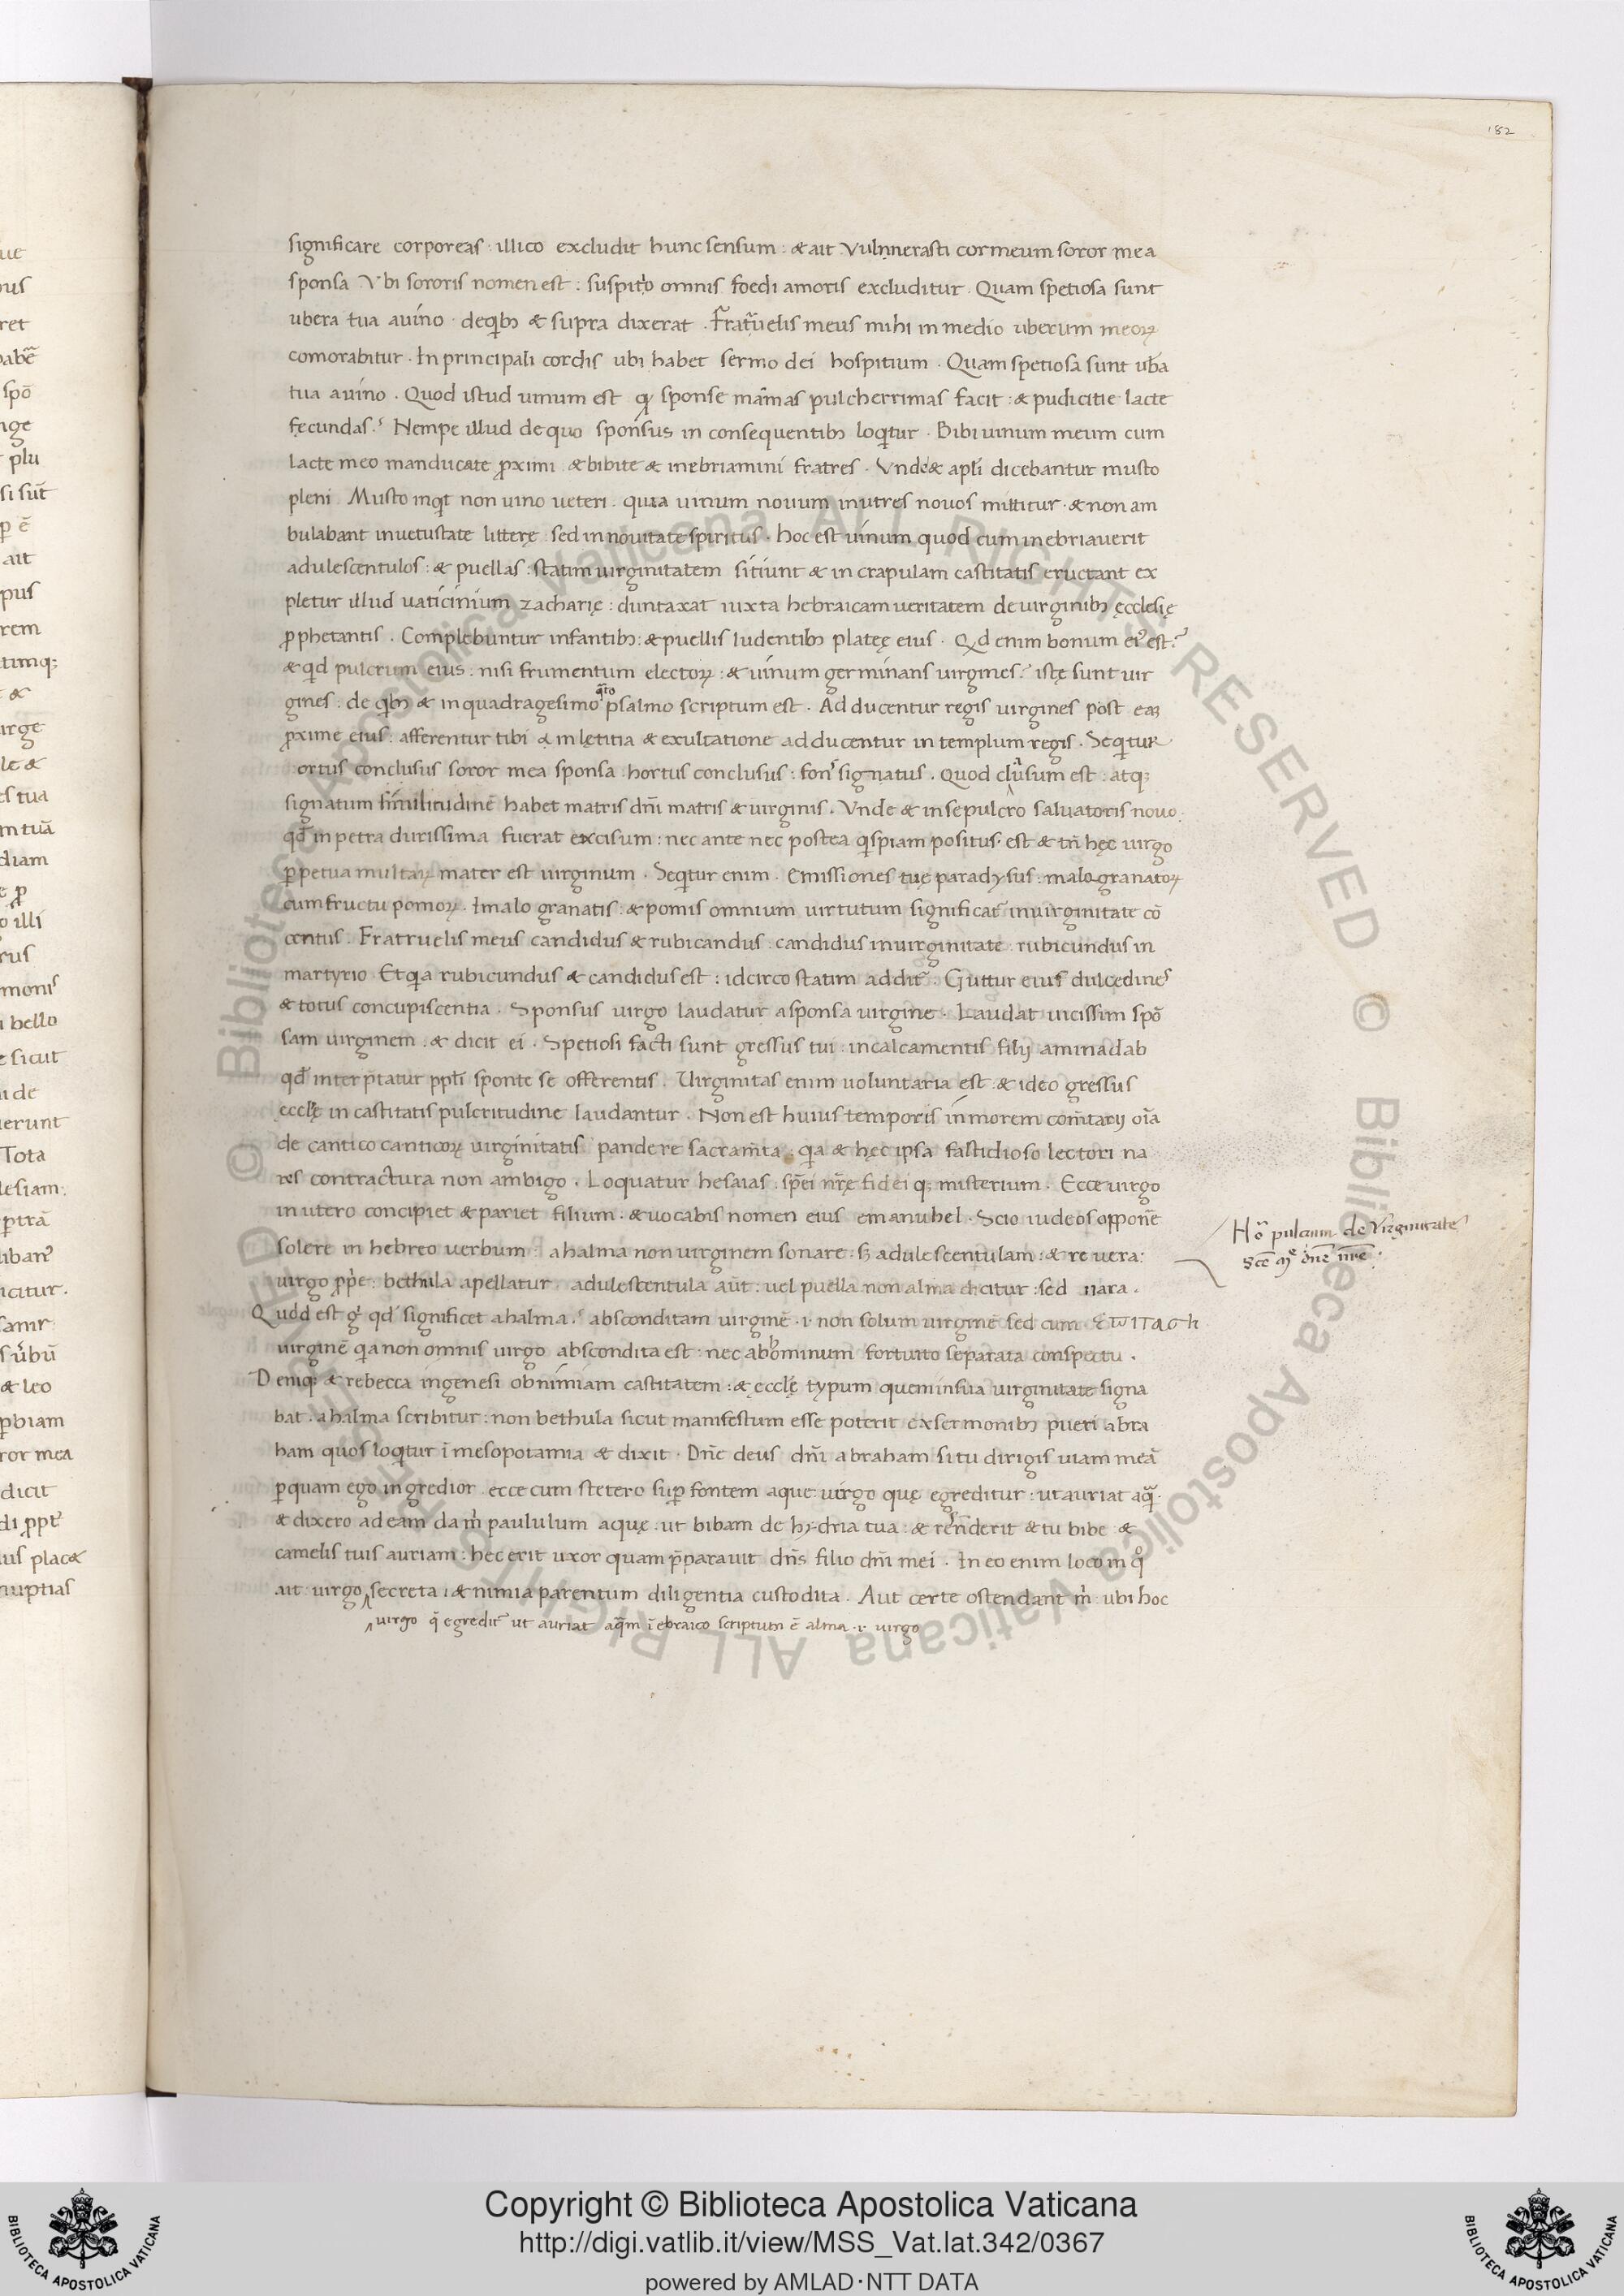 182
significare corporeas : illico excludit hunc sensum : & ait Vulnnerasti cor meum soror mea
sponsa Vbi sororis nomen est : suspitio omnis foedi amoris excluditur . Quam spetiosa sunt
ubera tua a uino . de qib; & supra dixerat . Fratruelis meus mihi in medio uberum meoꝝ
comorabitur . In principali cordis ubi habet sermo dei hospitium . Quam spetiosa sunt ub̄a
tua a uino . Quod istud uinum est qđ sponse mām̄as pulcherrimas facit : & pudicitie lacte
fecundas . Nempe illud de quo sponsus in consequentib; loqitur . Bibi uinum meum cum
lacte meo manducate ꝓximi . & bibite & inebriamini fratres . Vnde & apl̄i dicebantur musto
pleni . Musto inqit non uino ueteri . quia uinum nouum in utres nouos mittitur . & non am
bulabant in uetustate litterę : sed in nouitate spiritus . hoc est uinum quod cum inebriauerit
adulescentulos : & puellas : statim uirginitatem sitiunt & in crapulam castitatis eructant ex
pletur illud uaticinium zacharię : duntaxat iuxta hebraicam ueritatem de uirginib; ęcclesię
ꝓphetantis . Complebuntur infantib; : & puellis ludentib; plateę eius . Qđ enim bonum ei᷒ est ?
& qđ pulcrum eius : nisi frumentum electoꝝ : & uinum germinans uirgines ? istę sunt uir
gines . de qib; & in quadragesimo qrto psalmo scriptum est . Adducentur regis uirgines post eā
ꝓxime eius : afferentur tibi & in lętitia & exultatione adducentur in templum regis . Seqitur
ortus conclusus soror mea sponsa . hortus conclusus : fons signatus . Quod clausum est : atq;
signatum similitudinē habet matris dn̄i matris & uirginis . Vnde & in sepulcro saluatoris nouo .
qđ in petra durissima fuerat excisum : nec ante nec postea qispiam positus est & tn̄ hęc uirgo
ꝑpetua multaꝝ mater est uirginum . Seqitur enim . Emissiones tuę paradysus : malogranatoꝝ
cum fructu pomoꝝ . I malo granatis : & pomis omnium uirtutum significat᷒ in uirginitate cō
centus . Fratruelis meus candidus & rubicandus . candidus in uirginitate . rubicundus in
martyrio Et qia rubicundus & candidus est : idcirco statim addit᷒ : Guttur eius dulcedines
& totus concupiscentia . Sponsus uirgo laudatur a sponsa uirgine . Laudat uicissim spō
sam uirginem . & dicit ei . Spetiosi facti sunt gressus tui : in calcamentis filij aminadab
qđ interp̄tatur ppl̄i sponte se offerentis . Uirginitas enim uoluntaria est & ideo gressus
eccl̄ę in castitatis pulcritudine laudantur . Non est huius temporis in morem com̄tarij oīa
de cantico canticoꝝ uirginitatis pandere sacram̄ta . qia & hęc ipsa fastidioso lectori na
res contractura non ambigo . Loquatur hesaias . sp̄ei nr̄ę fidei q; misterium . Ecce uirgo
in utero concipiet & pariet filium . & uocabis nomen eius emanuhel . Scio iudeos opponē
solere in hebreo uerbum ahalma non uirginem sonare : s; adulescentulam : & re uera :
uirgo ꝓp̄e : bethula apellatur . adulescentula aūt : uel puella non alma dicitur : sed nara .
Quod est g qđ significet ahalma . absconditam uirginē . i . non solum uirginē sed cum
uirginē qia non omnis uirgo abscondita est : nec ab hominum fortuito separata conspectu .
Deniq; & rebecca in genesi ob nimiam castitatem : & ęccl̄ę typum quem in sua uirginitate signa
bat . ahalma scribitur : non bethula sicut manifestum esse poterit ex sermonib; pueri abra
ham quos loqitur ī mesopotamia & dixit . Dn̄e deus dn̄i abraham si tu dirigis uiam meā
ꝑquam ego ingredior . ecce cum stetero suꝑ fontem aque : uirgo quę egreditur : ut auriat aqā .
& dixero ad eam da m̄ paululum aquę . ut bibam de hydria tua : & respōderit & tu bibe &
camelis tuis auriam : hec erit uxor quam p̄parauit dn̄s filio dn̄i mei . In eo enim loco in qo
ait : uirgo secreta : & nimia parentum diligentia custodita . Aut certe ostendant m̄ : ubi hoc
uirgo q̄ egredit᷒ ut auriat aqm̄ ī ebraico scriptum ē alma . i . uirgo
Hō pulcrum de Virginitate
Scē mr̄e dn̄e nr̄e .
Copyright © Biblioteca Apostolica Vaticana
http://digi.vatlib.it/view/MSS_Vat.lat.342/0367
powered by AMLAD·NTT DATA